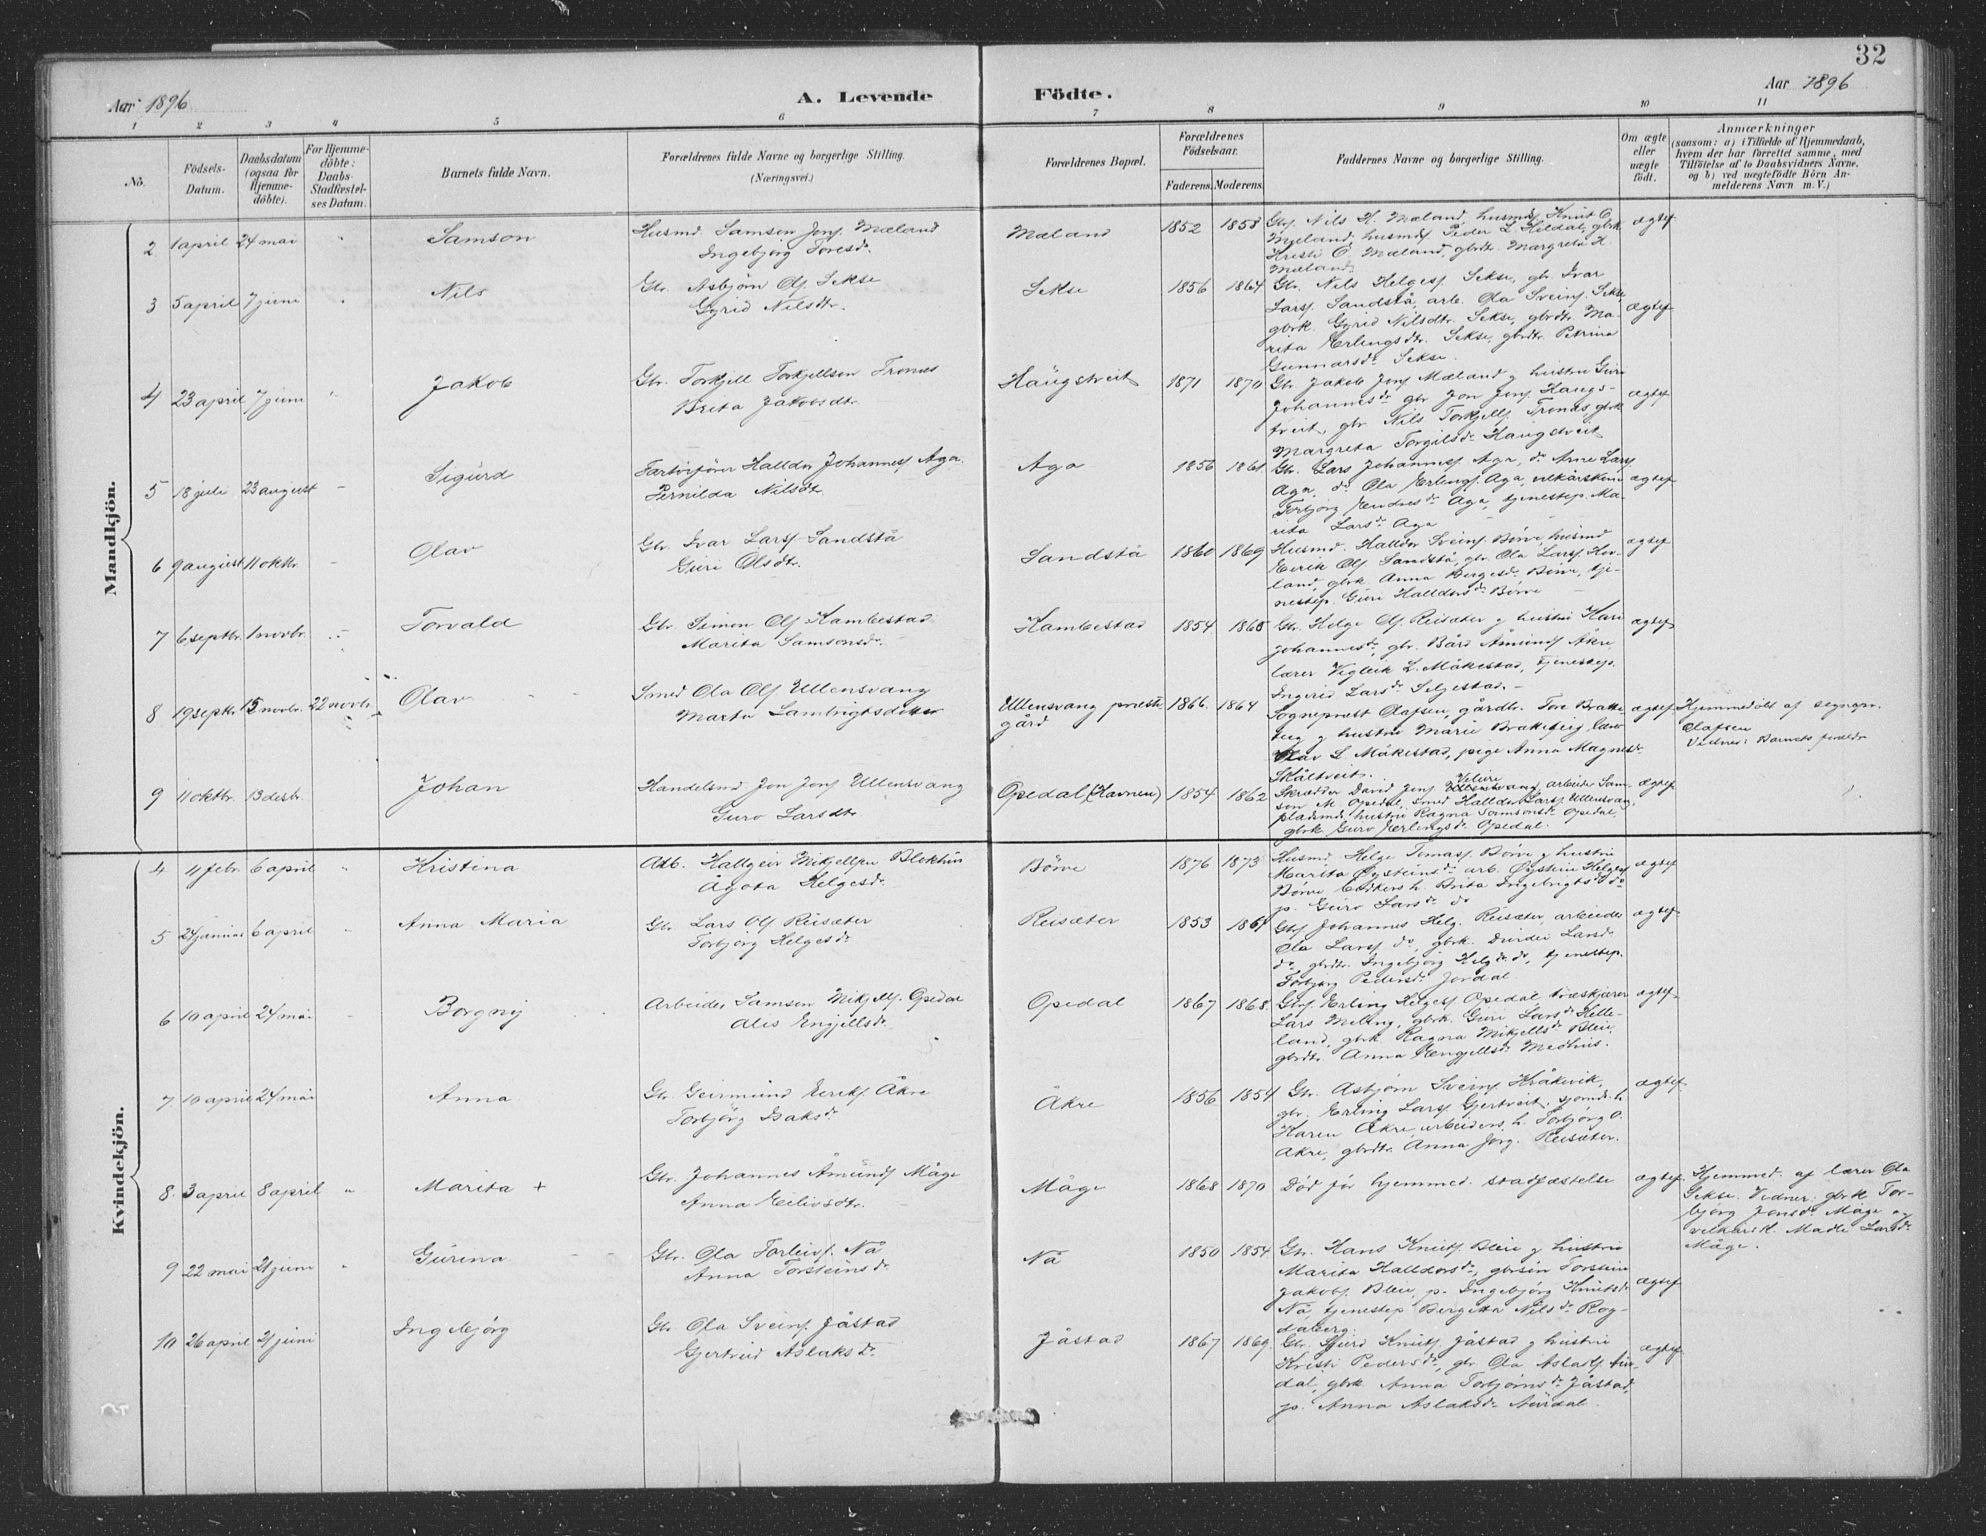 32
Aar 1896
A. Levende Födte.
Aar 1896
1 2 3 4 5 6 7 8 9 10 11
No.
Födsels-Datum.
Daabsdatum (ogsaa for Hjemme-döbte).
For Hjemme-döbte: Daabs-Stadfæstel-ses Datum.
Barnets fulde Navn.
Forældrenes fulde Navne og borgerlige Stilling.
(Næringsvei.)
Forældrenes Bopæl.
Forældrenes Födselsaar.
Faderens. Moderens.
Faddernes Navne og borgerlige Stilling.
Om ægte eller uægte födt.
Anmærkninger
(saasom: a) i Tilfælde af Hjemmedaab,
hvem der har forrettet samme, med
Tilföielse af to Daabsvidners Navne,
og b) ved uægtefödte Börn An-
melderens Navn m. V.)
Mandkjön.
2 1 april 24 mai " Samson
Husmd Samson Jons. Mæland
Ingebjörg Toresdr
Mæland 1852 1858
Gbs. Nils K. Mæland, husmd Knut O.
Mæland, husmds Peder L. Hildal, gbrk
Kristi O. Mæland, gbdr. Margreta H.
Mæland
ægtef
3 5 april 7 juni " Nils
Gbr. Asbjörn Ols. Sekse
Gyrid Nilsdtr.
Sekse 1856 1864
Gbr. Nils Helges. Sekse, gbr Ivar
Lars. Sandstå, arb. Ola Sveins. Sekse,
gbrk. Gyrid Nilsdtr. Sekse, gbrdtr. Ma-
rita Erlingsdtr. Sekse, gbrdtr. Petrina
Gunnarsdr Sekse.
ægtef
4 23 april 7 juni " Jakob
Gbr. Torkjell Torkjellsen Trones
Brita Jakobsdtr.
Haugstveit 1871 1870
Gbr Jakob Jons. Mæland g hustru Guri
Johannesdr gbr Jon Jons. Haugs-
tveit, gbr. Nils Torkjells. Tronas, gbrk
Margreta Torgilsdr Haugstveit
ægtef
5 18 juli 23 august - Sigurd
Fartöiförer Halldor Johanness. Aga.
Pernilda Nilsdtr
Aga 1856 1861
Gbr. Lars Johanness. Aga, do Arne Lars.
Aga, do Ola Erlings. Aga, vilkårskone
Torbjörg Endresdr Aga, tjenestep. Ma-
rita Larsdr Aga
ægtef
6 9 august 11 oktbr. - Olav
Gbr. Ivar Lars. Sandstå
Guri Olsdtr.
Sandstå 1860 1869
Husmd. Halldor Sveins. Börve husmd
Eirik Ols. Sandstå, gbr. Ola Lars. Hov-
land, gbrk Anna Bergesdr Börve, tje-
nestep. Guri Halldorsdr Börve
ægtef
7 6 septbr. 1 novbr. Torvald
Gbr. Simon Ols. Hambestad
Marita Samsonsdr.
Hambestad 1854 1865
Gbr. Helge Ols. Reisæter g hustru Kari
Johannesdr, gbr. Bård Åmunds. Åkre,
lærer Vigleik L. Måkestad, tjenestep.
Ingerid Larsdr Seljestad.
ægtef
8 19 septbr 15 novbr. 22 novbr. Olav
Smed Ola Ols. Ullensvang
Marta Lambrigtsdotter
Ullensvang prest-
gård
1866. 1864
Sogneprest Olafsen, gårdbr. Tore Bratte-
teig g hustru Marie Bratteteig, lærer
Olav L. Måkestad, pige Anna Magnesdr
Skåltveit.
ægtef
Hjemmedöbt af sognepr.
Olafsen
Vidner: Barnets foreldre
9 11 oktbr. 13 desbr. Johan
Handelsmd Jon Jons. Ullensvang
Guro Larsdtr
Opedal (Havnen) 1854 1862
Skrædder David Jons. Ullensvang, arbeider Sam-
son M. Opedal, smed Halldor Lars. Ullensvang,
pladsmds hustru Ragna Samsonsdr Opedal,
gbrk Guro Erlingsdr Opedal.
ægtef
Kvindekjön.
4 11 febr. 6 april " Kristina
Arb. Hallgeir Mikjellsen Blokhus
Ågota Helgesdr
Börve 1876 1873
Husmd. Helge Tomass. Börve g hustru
Marita Öysteinsdr arb. Öystein Helges.
Börve, Brita Ingebrigtsdr do
p. Guro Larsdr do
ægtef
5 24 januar 6 april " Anna Maria
Gbr. Lars Ols. Reisæter
Torbjörg Helgesdr
Reisæter 1853 1864
Gbs. Johannes Helg. Reisæter, arbeider
Ola Lars. do, gbrk. Durdei Larsdr
do, gbrdtr. Ingebjörg Helgsdr do, tjenestep.
Torbjörg Pedersdr Jordal
ægtef
6 10 april 24 mai - Borgny
Arbeider Samson Mikjells. Opedal
Alis Engjellsdr
Opedal 1867 1868
Gbrs. Erling Helges. Opedal, træskjærer
Lars Meling, gbrk. Guri Larsdr Helle-
land, gbrk Ragna Mikjellsdr Bleie,
gbrdtr. Anna Engjellsdr Medhus.
ægtef
7. 10 april 24 mai Anna
Gbr. Geirmund Eeriks. Åkre
Torbjörg Isaksdr
Åkre 1856 1854
Gbr. Asbjörn Sveins. Kråkevik,
gbr. Erling Lars. Gjertveit, sjomds h.
Karen Åkre, arbeiders h. Torbjörg O.
Åkre, gbrdtr. Anna Jörg. Reisæter.
ægtef
8. 3 april 8 april " Marita +
Gbr. Johannes Åmunds. Måge
Anna Eilivsdtr.
Måge 1868 1870
Död för hjemmed. stadfæstelse
ægtef
Hjemmed. af lærer Ola
Sekse. Vidner: gbrk Tor-
björg Jonsdr Måge og
vilkårsk. Madli Larsdr
Måge.
9 22 mai 21 juni " Gurina
Gbr. Ola Torleivs. Nå
Anna Torsteinsdr
Nå 1850 1854
Gbr. Hans Knuts. Bleie g hustru
Marita Halldorsdr, gbrsön Torstein
Jakobs. Bleie, p. Ingebjörg Knutsdr
Nå, tjenestep Bergetta Nilsdr Rog-
daberg.
ægtef
10 26 april 21 juni Ingebjörg
Gbr. Ola Sveins. Jåstad
Gjertrud Aslaksdr
Jåstad 1867 1869.
Gbr. Sjurd Knuts. Jåstad g hustru
Kristi Pedersdr, gbr Ola Aslaks. Aur-
dal, gbrk Anna Torbjörnsdr Jåstad,
p. Anna Aslaksdr Aurdal.
ægtef